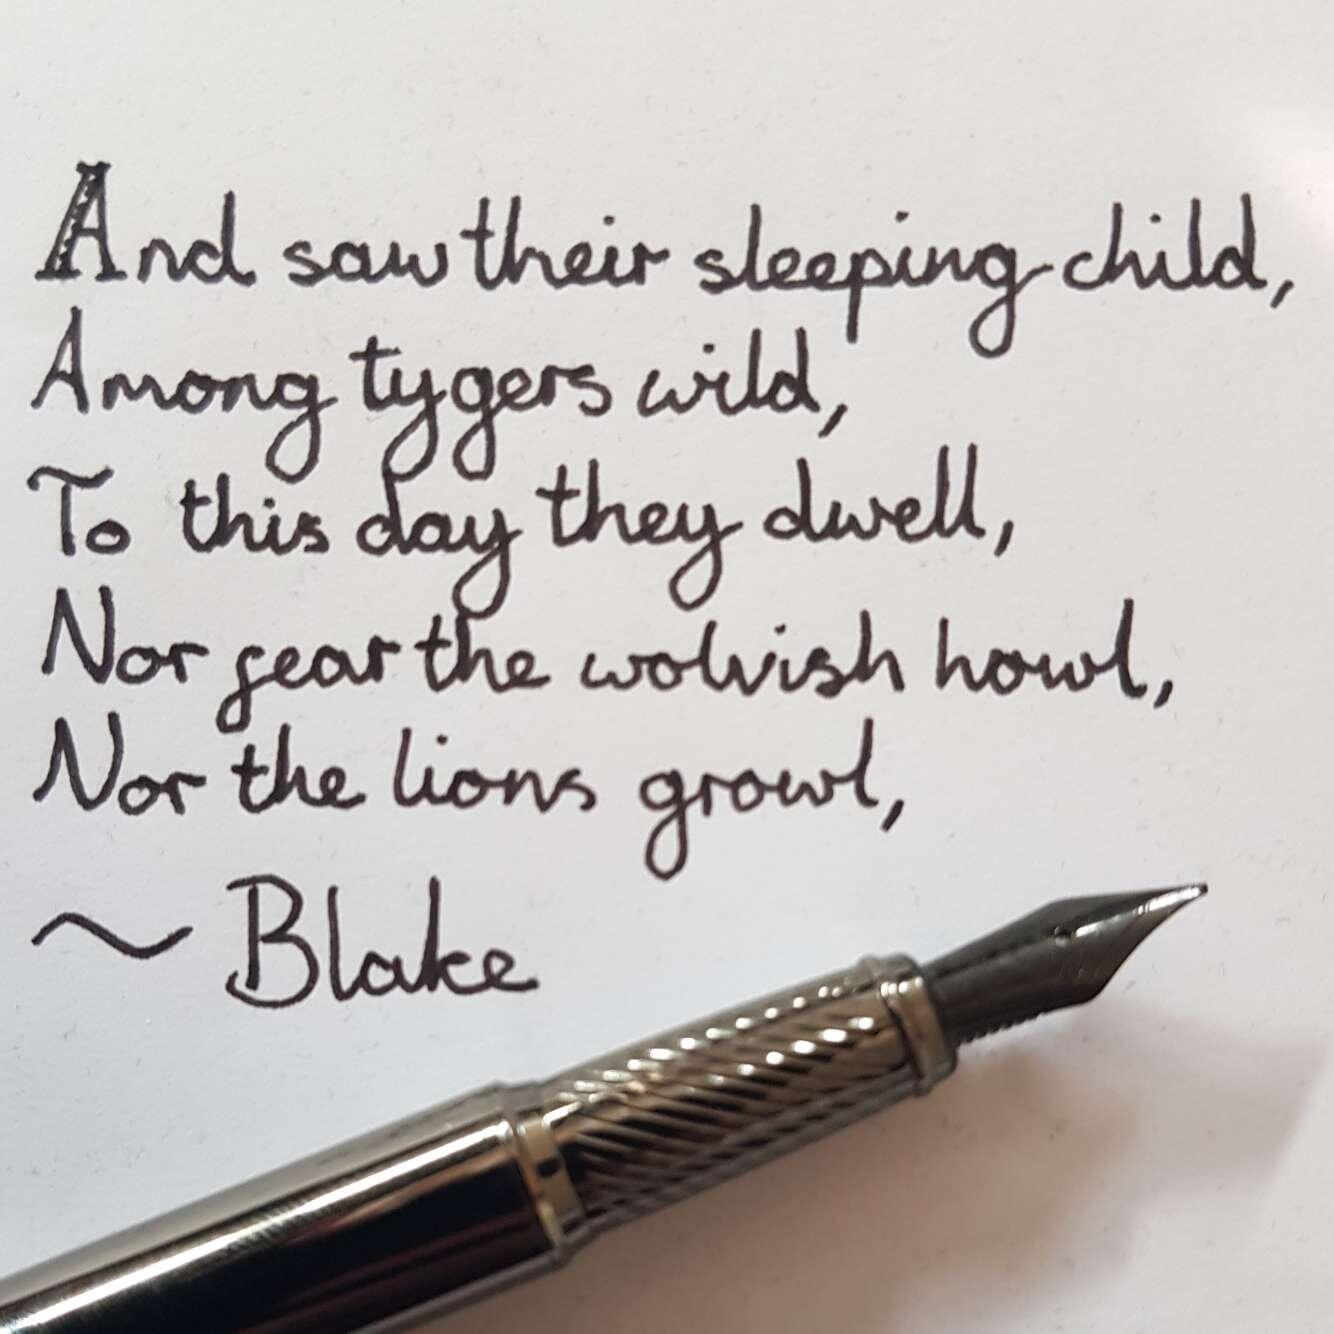 And saw their sleeping child,
Among tygers wild,
To this day they dwell,
Nor fear the wolvish howl,
Nor the lions growl,
~ Blake